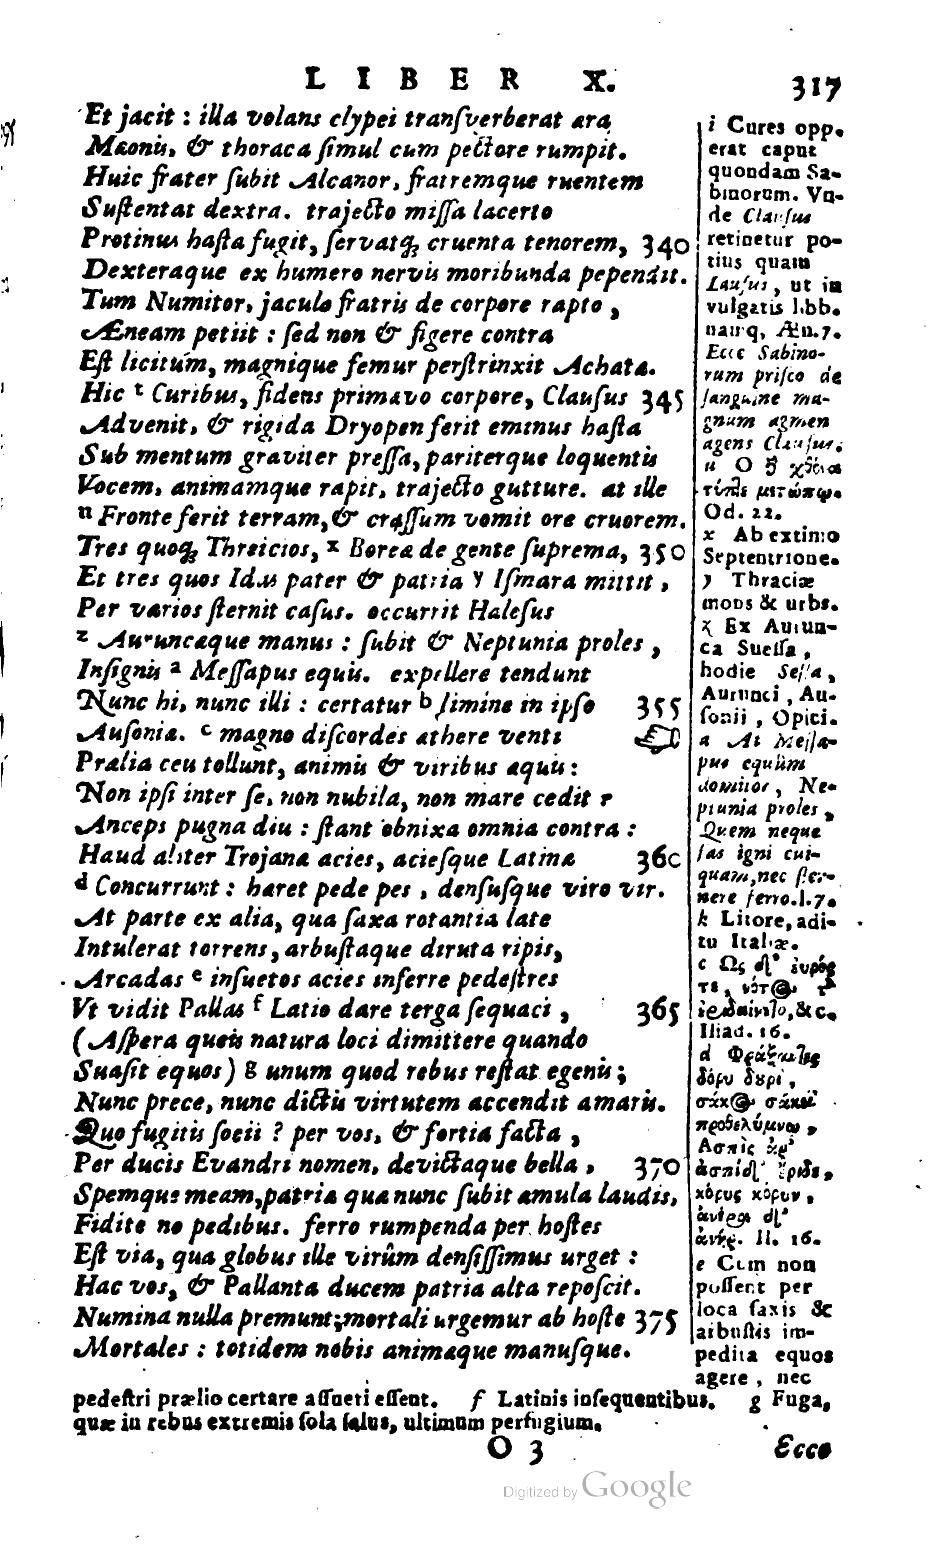 LIBER X. 317
Et jacit : illa volans clypei tranſverberat æra
Mæonis, & thoraca ſimul cum pectore rumpit.
Huic frater ſubit Alcanor, fratremque ruentem
Suſtentat dextra. trajecto miſſa lacerto
Protinus haſta fugit, ſervatq; cruenta tenorem, 340
Dexteraque ex humero nervis moribunda pependit.
Tum Numitor, jaculo fratris de corpore rapto,
Æneam petiit : ſed non & figere contra
Eſt licitum, magnique femur perſtrinxit Achatæ.
Hic t Curibus, fidens primævo corpore, Clauſus 345
Advenit, & rigida Dryopen ferit eminus haſta
Sub mentum graviter preſſa, pariterque loquentis
Vocem, animamque rapit, trajecto gutture. at ille
u Fronte ferit terram, & craſſum vomit ore cruorem.
Tres quoq; Threicios, x Boreæ de gente ſuprema, 350
Et tres quos Idas pater & patria y Iſmara mittit,
Per varios ſternit caſus. occurrit Haleſus
z Auruncæque manus : ſubit & Neptunia proles,
Inſignis a Meſſapus equis. expellere tendunt
Nunc hi, nunc illi : certatur b limine in ipſo 355
Auſoniæ. c magno diſcordes æthere venti
Prælia ceu tollunt, animis & viribus æquis :
Non ipſi inter ſe, non nubila, non mare cedit :
Anceps pugna diu : ſtant obnixa omnia contra :
Haud aliter Trojanæ acies, acieſque Latinæ 360
d Concurrunt : hæret pede pes, denſuſque viro vir.
At parte ex alia, qua ſaxa rotantia late
Intulerat torrens, arbuſtaque diruta ripis,
Arcadas e inſuetos acies inferre pedeſtres
Vt vidit Pallas f Latio dare terga ſequaci, 365
(Aſpera queis natura loci dimittere quando
Suaſit equos) g unum quod rebus reſtat egenis;
Nunc prece, nunc dictis virtutem accendit amaris.
Quo fugitis ſocii ? per vos, & fortia facta,
Per ducis Evandri nomen, devictaque bella, 370
Spemque meam, patriæ quæ nunc ſubit æmula laudis,
Fidite ne pedibus. ferro rumpenda per hoſtes
Eſt via, qua globus ille virûm denſiſſimus urget :
Hac vos, & Pallanta ducem patria alta repoſcit.
Numina nulla premunt; mortali urgemur ab hoſte 375
Mortales : totidem nobis animæque manuſque.
i Cures opp.
erat caput
quondam Sa-
binorum. Vn-
de Clauſus
retinetur po-
tius quam
Lauſus, ut in
vulgatis libb.
namq, Æn. 7.
Ecce Sabino-
rum priſco de
ſanguine ma-
gnum agmen
agens Clauſus.
u Ο δ χθόνα
τύπ]ε μετώπῳ.
Od. 22.
x Ab extimo
Septentrione.
y Thraciæ
mons & urbs.
z Ex Aurun-
ca Sueſſa,
hodie Seſſa,
Aurunci, Au-
ſonii, Opici.
a At Meſſa-
pus equûm
domitor, Ne-
ptunia proles,
Quem neque
fas igni cui-
quam, nec ſter-
nere ferro. l. 7.
k Litore, adi-
tu Italiæ.
c Ως δ' εὐρός
τε, νότος τ'
&c.
Iliad. 16.
d Φράξαντες
δόρυ δουρὶ,
σάκος σάκεϊ
προθελύμνῳ,
Ασπὶς ἄρ'
ἀσπίδ' ἔρειδε,
κόρυς κόρυν,
ἀνέρα δ'
ἀνήρ. Il. 16.
e Cum non
poſſent per
loca ſaxis &
arbuſtis im-
pedita equos
agere, nec
pedeſtri prælio certare aſſueti eſſent. f Latinis inſequentibus. g Fuga,
quæ in rebus extremis ſola ſalus, ultimum perfugium.
O 3 Ecce
Digitized by Google